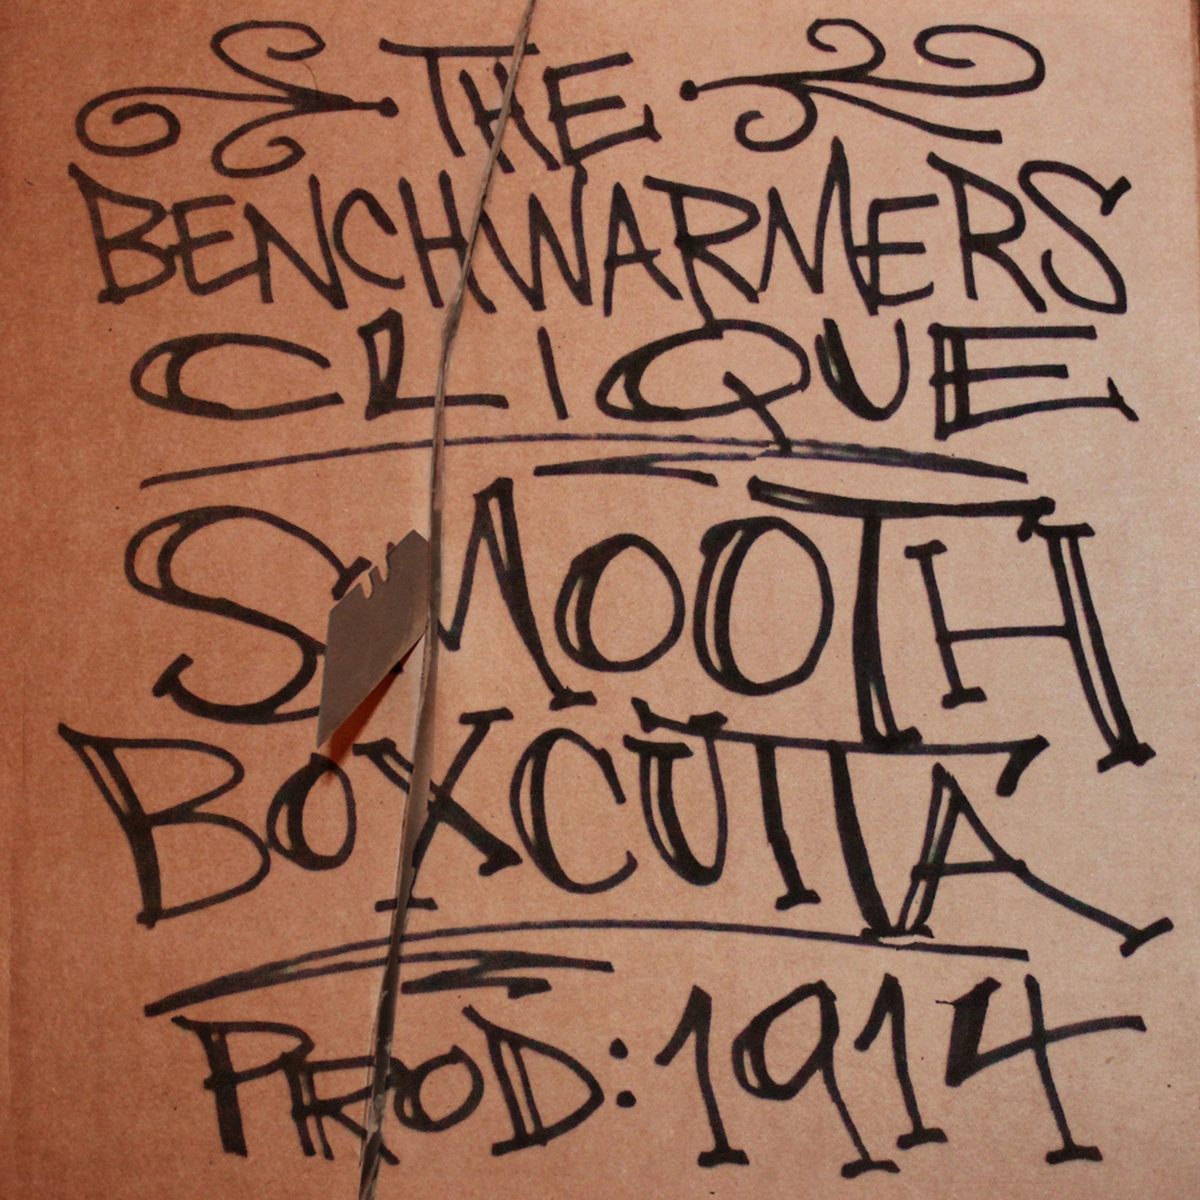 THE
BENCHWARMERS
CLIQUE
SMOOTH
BOXCUTTA
PROD: 1914